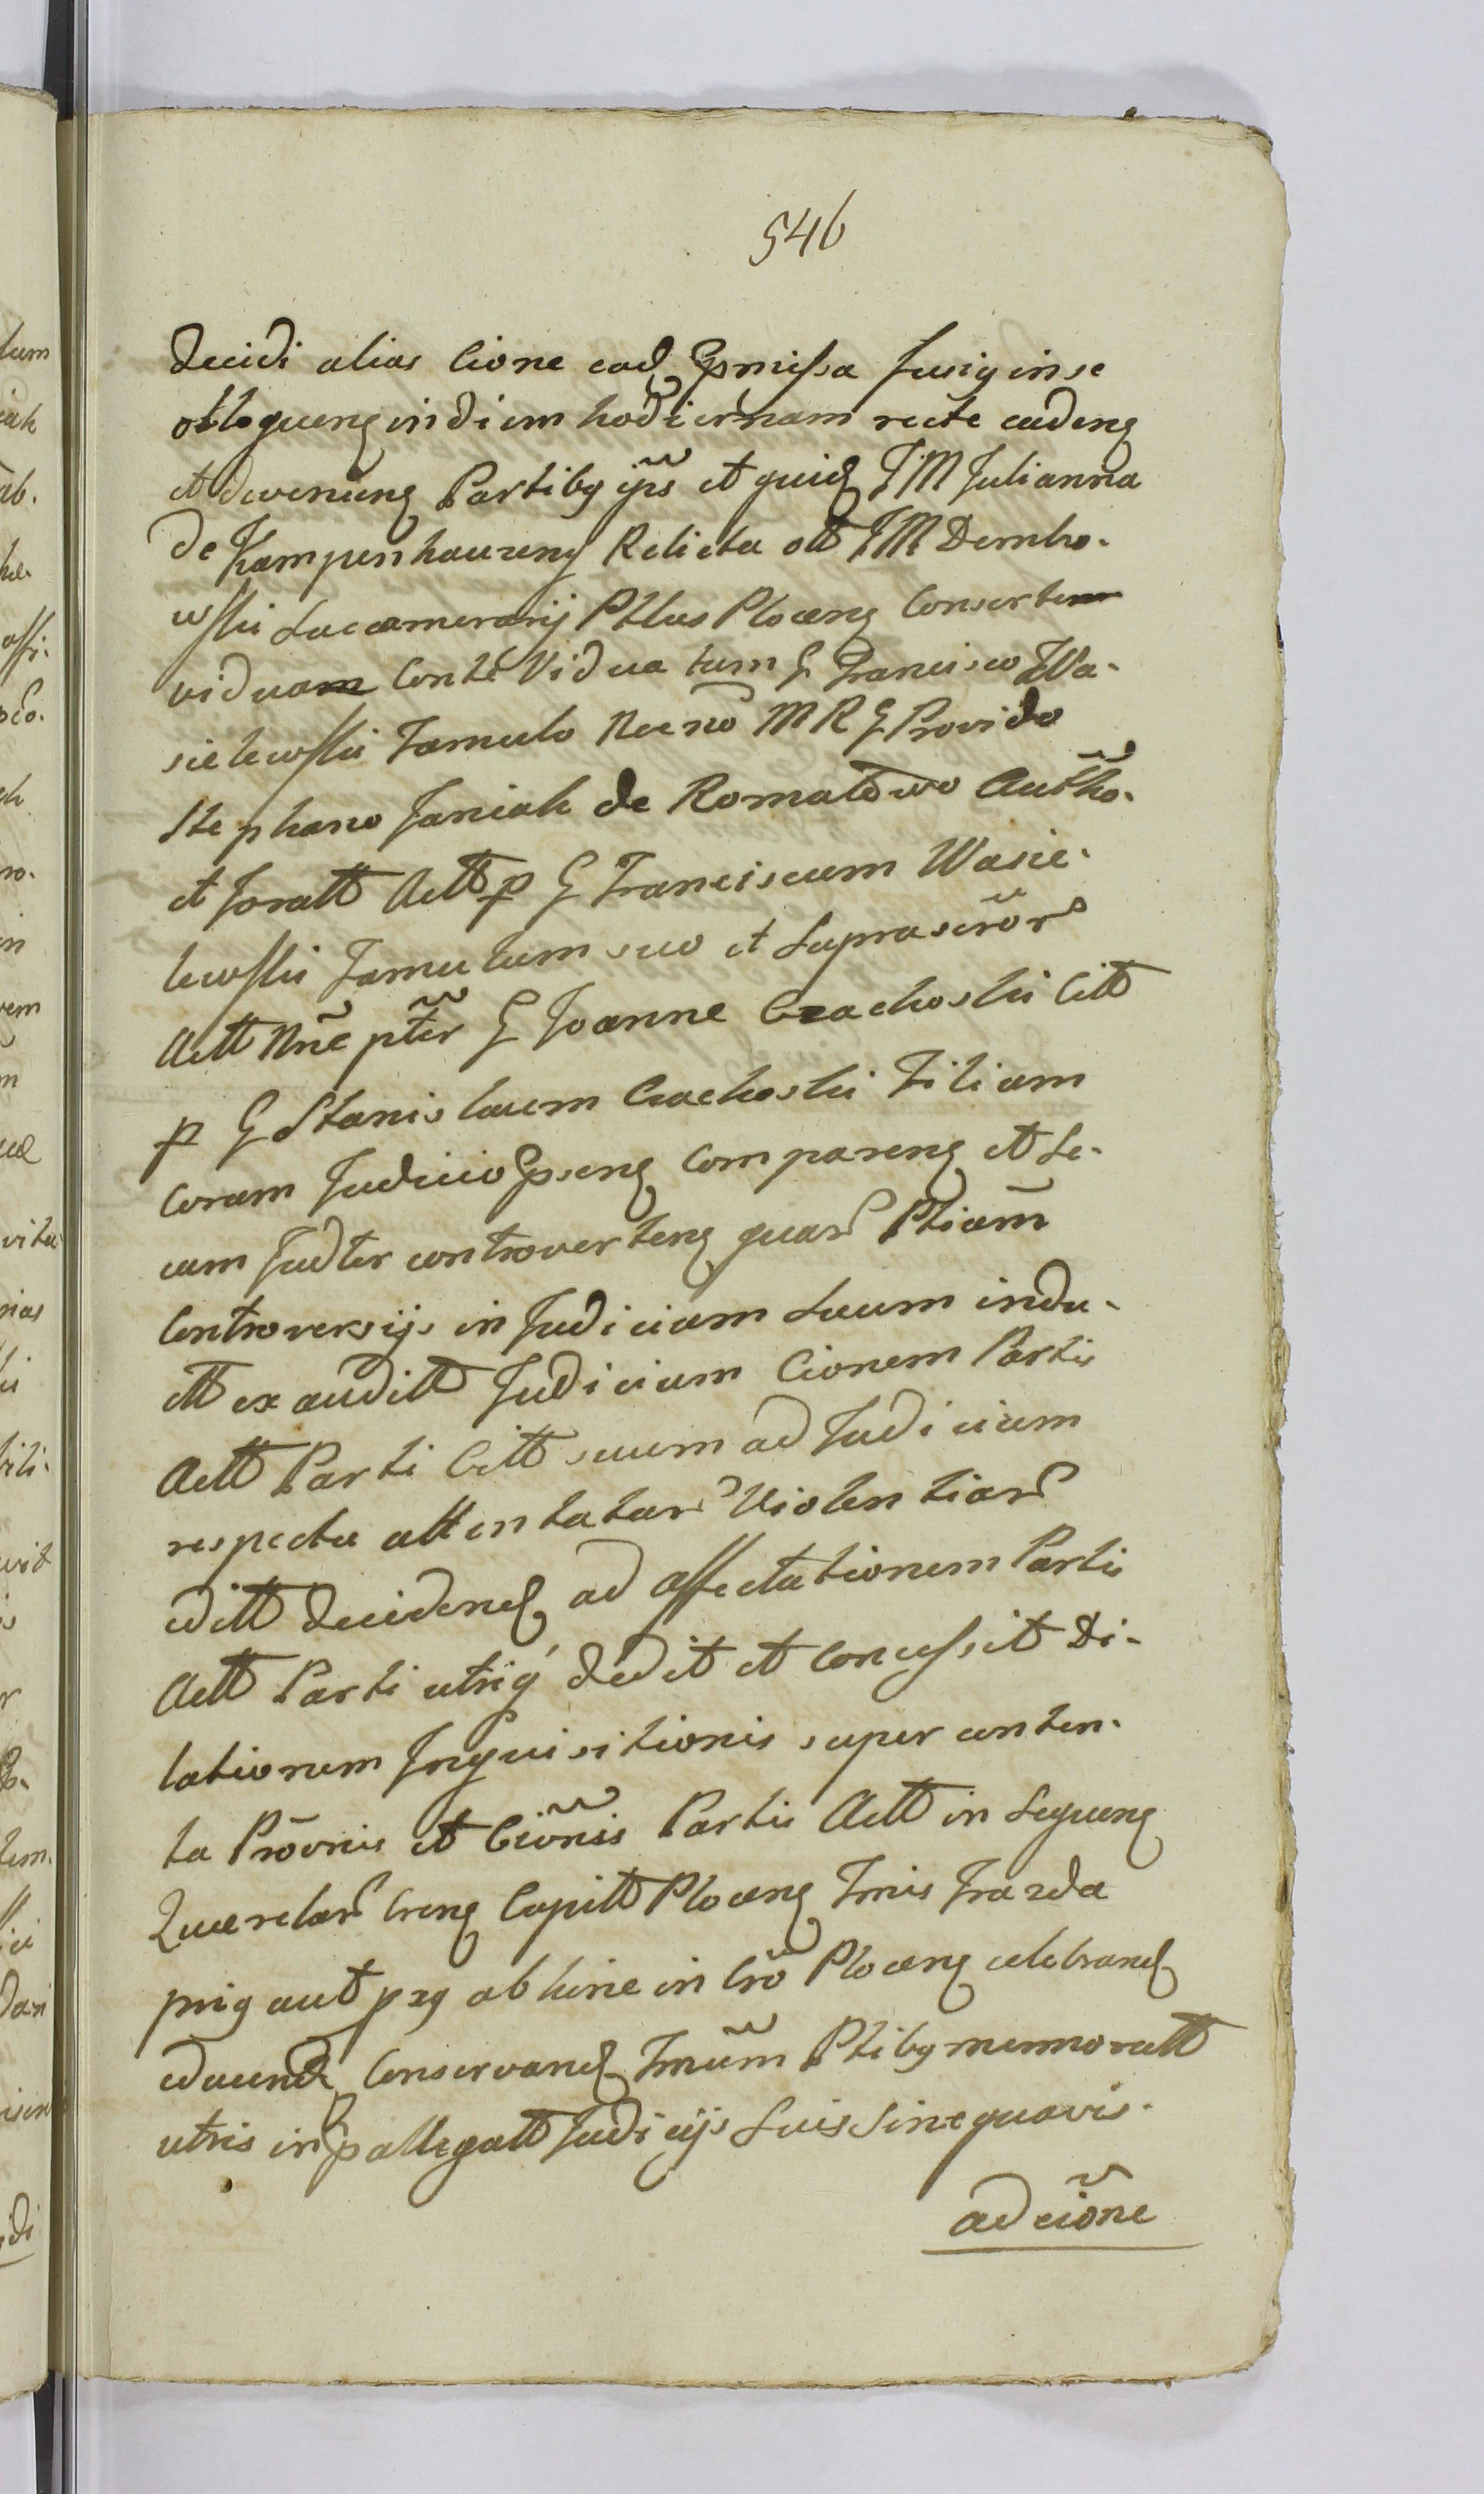 546
decidi alias Cione ead pmissa fusig in se
obloqueng in diem hodiernam recte cadeng
et deveneng Partibg ijs et quid IM Julianna
de Kampenhauzeng Relicta olt IM Dembo-
wski Succamerarij Pltus Ploceng Consorte
vidua Conte Vidua tum G Francisco Wa-
sielewski Famulo Necno MR G Provido
Stephano Janiak de Romatowo Autho-
et Joratt Actt p G Franciscum Wasie-
lewski Famulum suo et Suprascror
Actt Nne pter G Joanne Czachoski Citt
p G Stanislaum Czachoski Filium
coram Judicio pseng Compareng et Se-
cum Judter controverteng quar Ptium
Controversijs in Judicium Suum indu-
ctt exauditt Judicium Cionem Partis
Actt Parti Citt suum ad Judicium
respectu attentatar Violentiar
editt decidend ad affectationem Partis
Actt Parti utriq dedit et Concessit Di-
lationem Inquisitionis super conten-
ta Proonis et Cionis Partis Actt in Sequeng
Querelar Creng Capitt Ploceng Tmis
prig aut pxg abhinc in Cro Ploceng celebrand
educend Conservand Tmum Ptibg memoratt
utris in pallegatt Judicijs Suis Sine quavis-
adcione